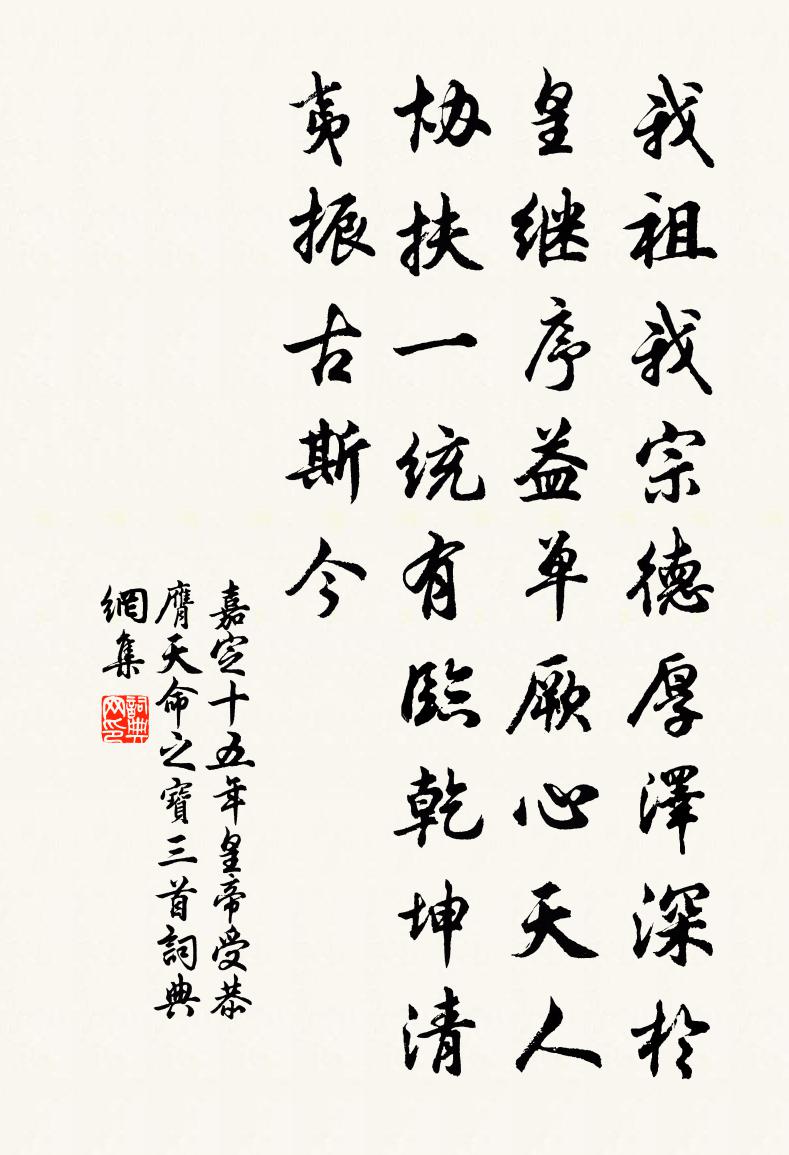 我祖我宗德厚澤深於
皇继序益单厥心天人
协扶一统有臨乾坤清
夷振古斯今
嘉定十五年皇帝受恭
膺天命之寶三首詞典
網集
詞典
网印